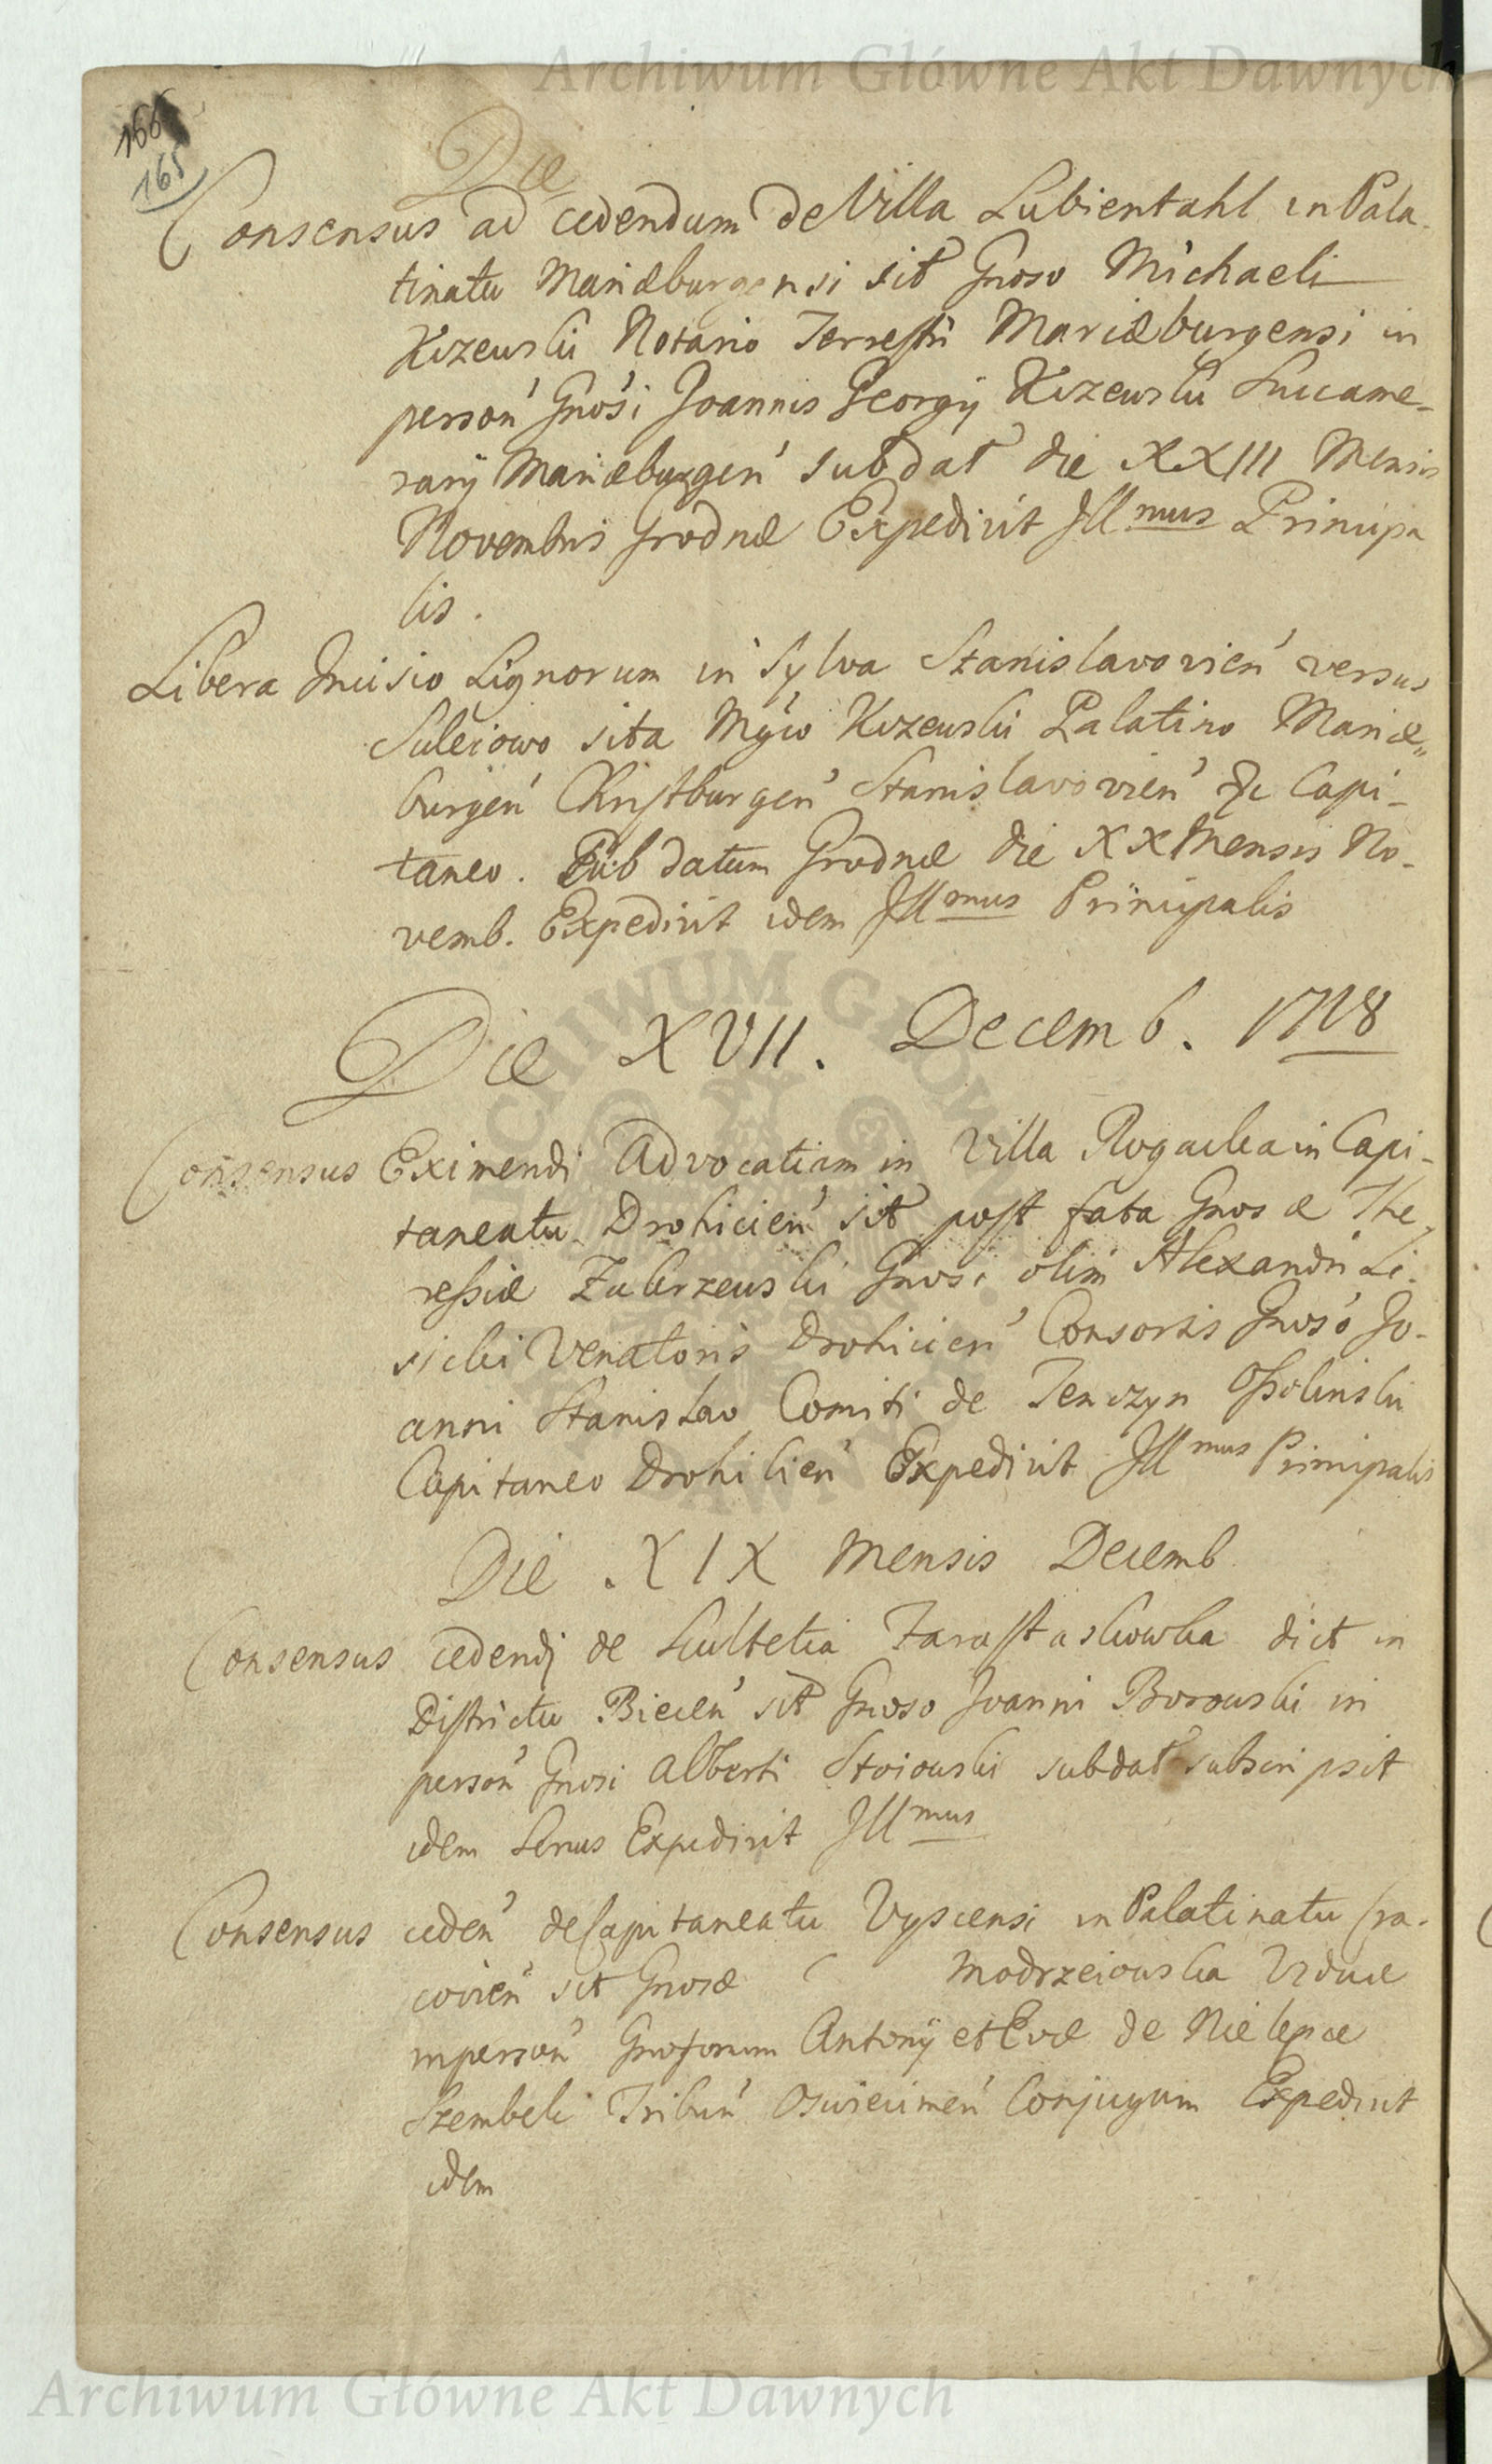 Archiwum Główne Akt Dawnych
166
165
Die
Consensus ad cedendum de Villa Lubientahl in Pala-
tinatu Mariæburgensi sit Gnoso Michaeli
Kczewski Notario Terrestri Mariæburgensi in
person Gnosi Joannis Georgij Kczewski Succame-
rarij Mariæburgen sub dat die XXIII Mensis
Novembris Grodnæ Expedivit Illmus Principa
lis.
Libera Incisio Lignorum in Sylva Stanislavovien versus
Suleiowo sita Mgco Kczewski Palatino Mariæ-
burgen Christburgen Stanislavovien &c Capi-
taneo. Sub datum Grodnæ die XX Mensis No-
vemb. Expedivit idem Illmus Principalis
Die XVII. Decemb. 1718
Consensus Eximendi Advocatiam in Villa Rogacka in Capi-
taneatu Drohicien sit post fata Gnosæ The
ressiæ Zalerzewski Gnosi olim Alexandri Li-
sicki Venatoris Drohicien Consortis Gnoso Jo-
anni Stanislao Comiti de Tenczyn Ossolinski
Capitaneo Drohicien Expedivit Illmus Principalis
Die XIX Mensis Decemb
Consensus cedendi de Scultetia Tarastaskowka dict in
Districtu Biecen sit Gnoso Joanni Borowski in
person Gnosi Alberti Stoiowski sub dat subscripsit
idem Sernus Expedivit Illmus
Consensus ceden de Capitaneatu Uyscensi in Palatinatu Cra-
covien sit Gnosæ Modrzeiowska Viduæ
in person Gnosorum Antonij et Evæ de Nielepce
Szembek Tribun Oswiecimen Conjugum Expedivit
idem
Archiwum Główne Akt Dawnych